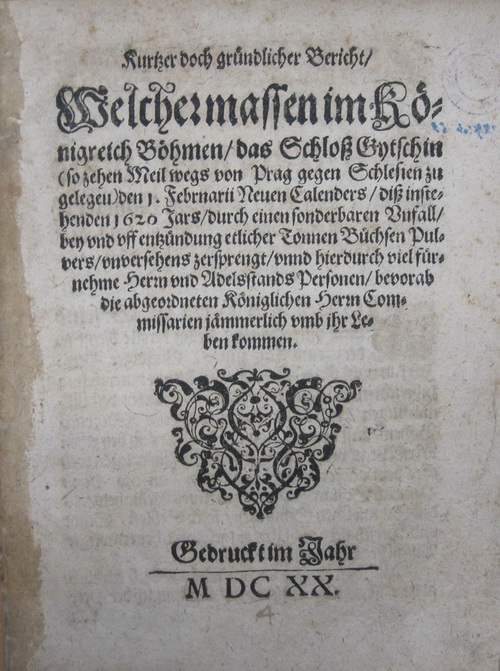 Kurtzer doch gründlicher Bericht/
Welchermassen im Kö-
nigreich Böhmen/ das Schloß Gytschin
(so zehen Meil wegs von Prag gegen Schlesien zu
gelegen) den 1. Februarii Neuen Calenders / diß inste-
henden 1620 Jars/ durch einen sonderbaren Vnfall/
bey vnd vff entzündung etlicher Tonnen Büchsen Pul-
vers/ vnversehens zersprengt/ vnnd hierdurch viel für-
nehme Herrn vnd Adelsstands Personen/ bevorab
die abgeordneten Königlichen Herrn Com-
missarien jämmerlich vmb jhr Le-
ben kommen.
Gedruckt im Jahr
M DC XX.
4